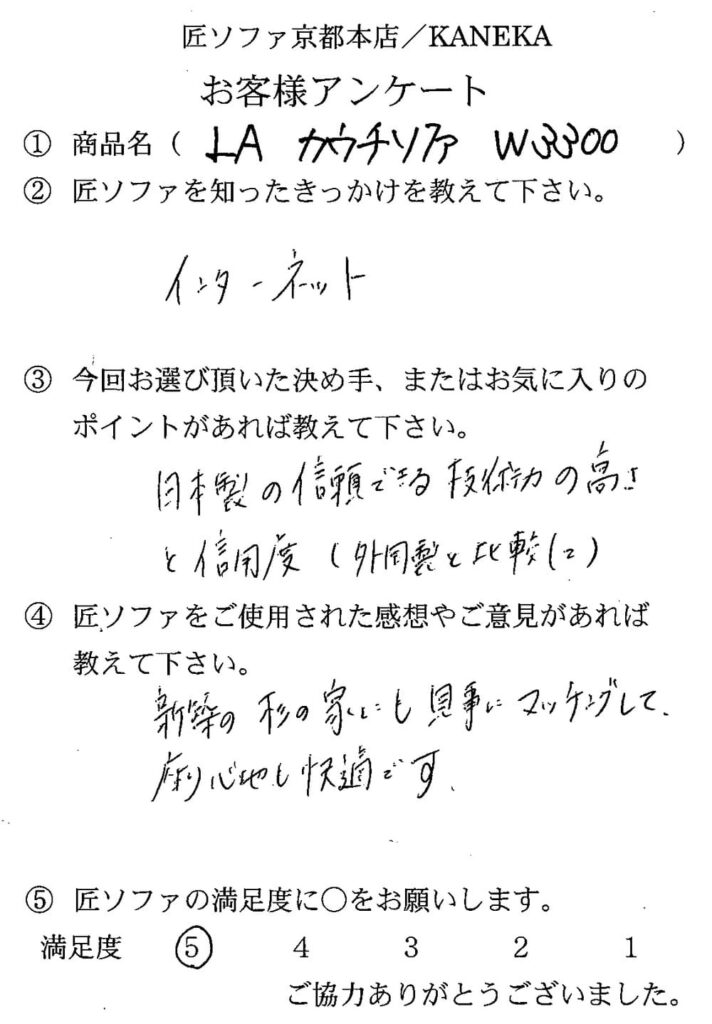 匠ソファ京都本店／KANEKA
お客様アンケート
① 商品名（ LA カウチソファ W3300 ）
② 匠ソファを知ったきっかけを教えて下さい。
インターネット
③ 今回お選び頂いた決め手、またはお気に入りの
ポイントがあれば教えて下さい。
日本製の信頼できる技術力の高さ
と信用度（外国製と比較して）
④ 匠ソファをご使用された感想やご意見があれば
教えて下さい。
新築の杉の家にも見事にマッチングして、
座り心地も快適です。
⑤ 匠ソファの満足度に○をお願いします。
満足度 ⑤ 4 3 2 1
ご協力ありがとうございました。